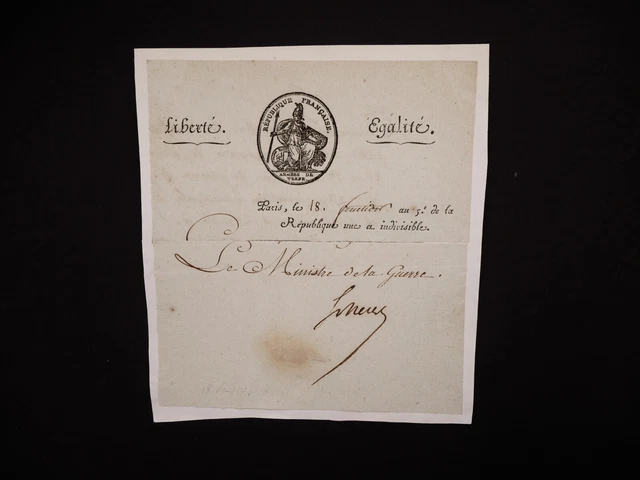 Liberté.
RÉPUBLIQUE FRANÇAISE.
Egalité.
ARMÉES DE
TERRE.
Paris, le 18. fructidor an 5.e de la
République une & indivisible.
Le Ministre de la Guerre.